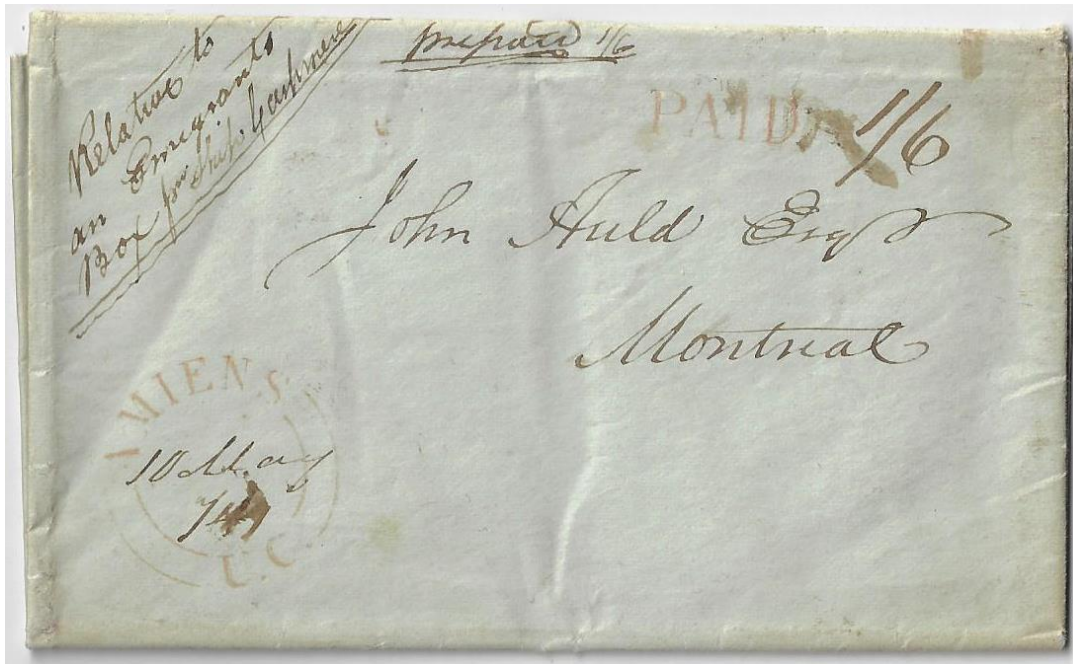 Relative to
an Emigrants
Box per Ship Cashmere
prepaid 1/6
PAID 1/6
John Auld Esqr
Montreal
AMIENS
10 May
U.C.